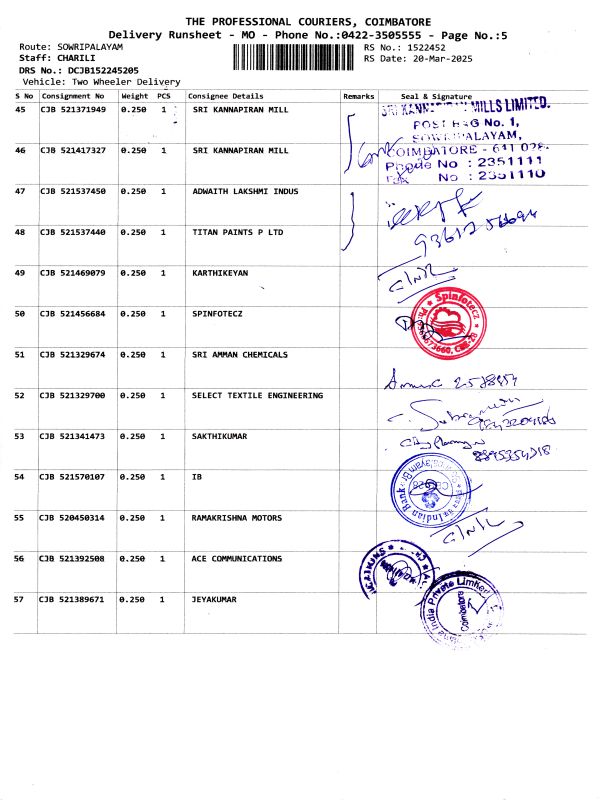 THE PROFESSIONAL COURIERS, COIMBATORE
Delivery Runsheet - MO - Phone No.:0422-3505555 - Page No.:5
Route: SOWRIPALAYAM RS No.: 1522452
Staff: CHARILI RS Date: 20-Mar-2025
DRS No.: DCJB152245205
Vehicle: Two Wheeler Delivery
S No Consignment No Weight PCS Consignee Details Remarks Seal & Signature
45 CJB 521371949 0.250 1 SRI KANNAPIRAN MILL
SRI KANNAPIRAN MILLS LIMITED.
POST BAG No. 1,
SOWRIPALAYAM,
46 CJB 521417327 0.250 1 SRI KANNAPIRAN MILL
COIMBATORE - 641 028.
Phone No : 2351111
Fax No : 2351110
47 CJB 521537450 0.250 1 ADWAITH LAKSHMI INDUS
48 CJB 521537440 0.250 1 TITAN PAINTS P LTD
49 CJB 521469079 0.250 1 KARTHIKEYAN
50 CJB 521456684 0.250 1 SPINFOTECZ
Spinfotecz
51 CJB 521329674 0.250 1 SRI AMMAN CHEMICALS
52 CJB 521329700 0.250 1 SELECT TEXTILE ENGINEERING
53 CJB 521341473 0.250 1 SAKTHIKUMAR
54 CJB 521570107 0.250 1 IB
Indian Bank
55 CJB 520450314 0.250 1 RAMAKRISHNA MOTORS
56 CJB 521392508 0.250 1 ACE COMMUNICATIONS
57 CJB 521389671 0.250 1 JEYAKUMAR
India Private Limited
Coimbatore